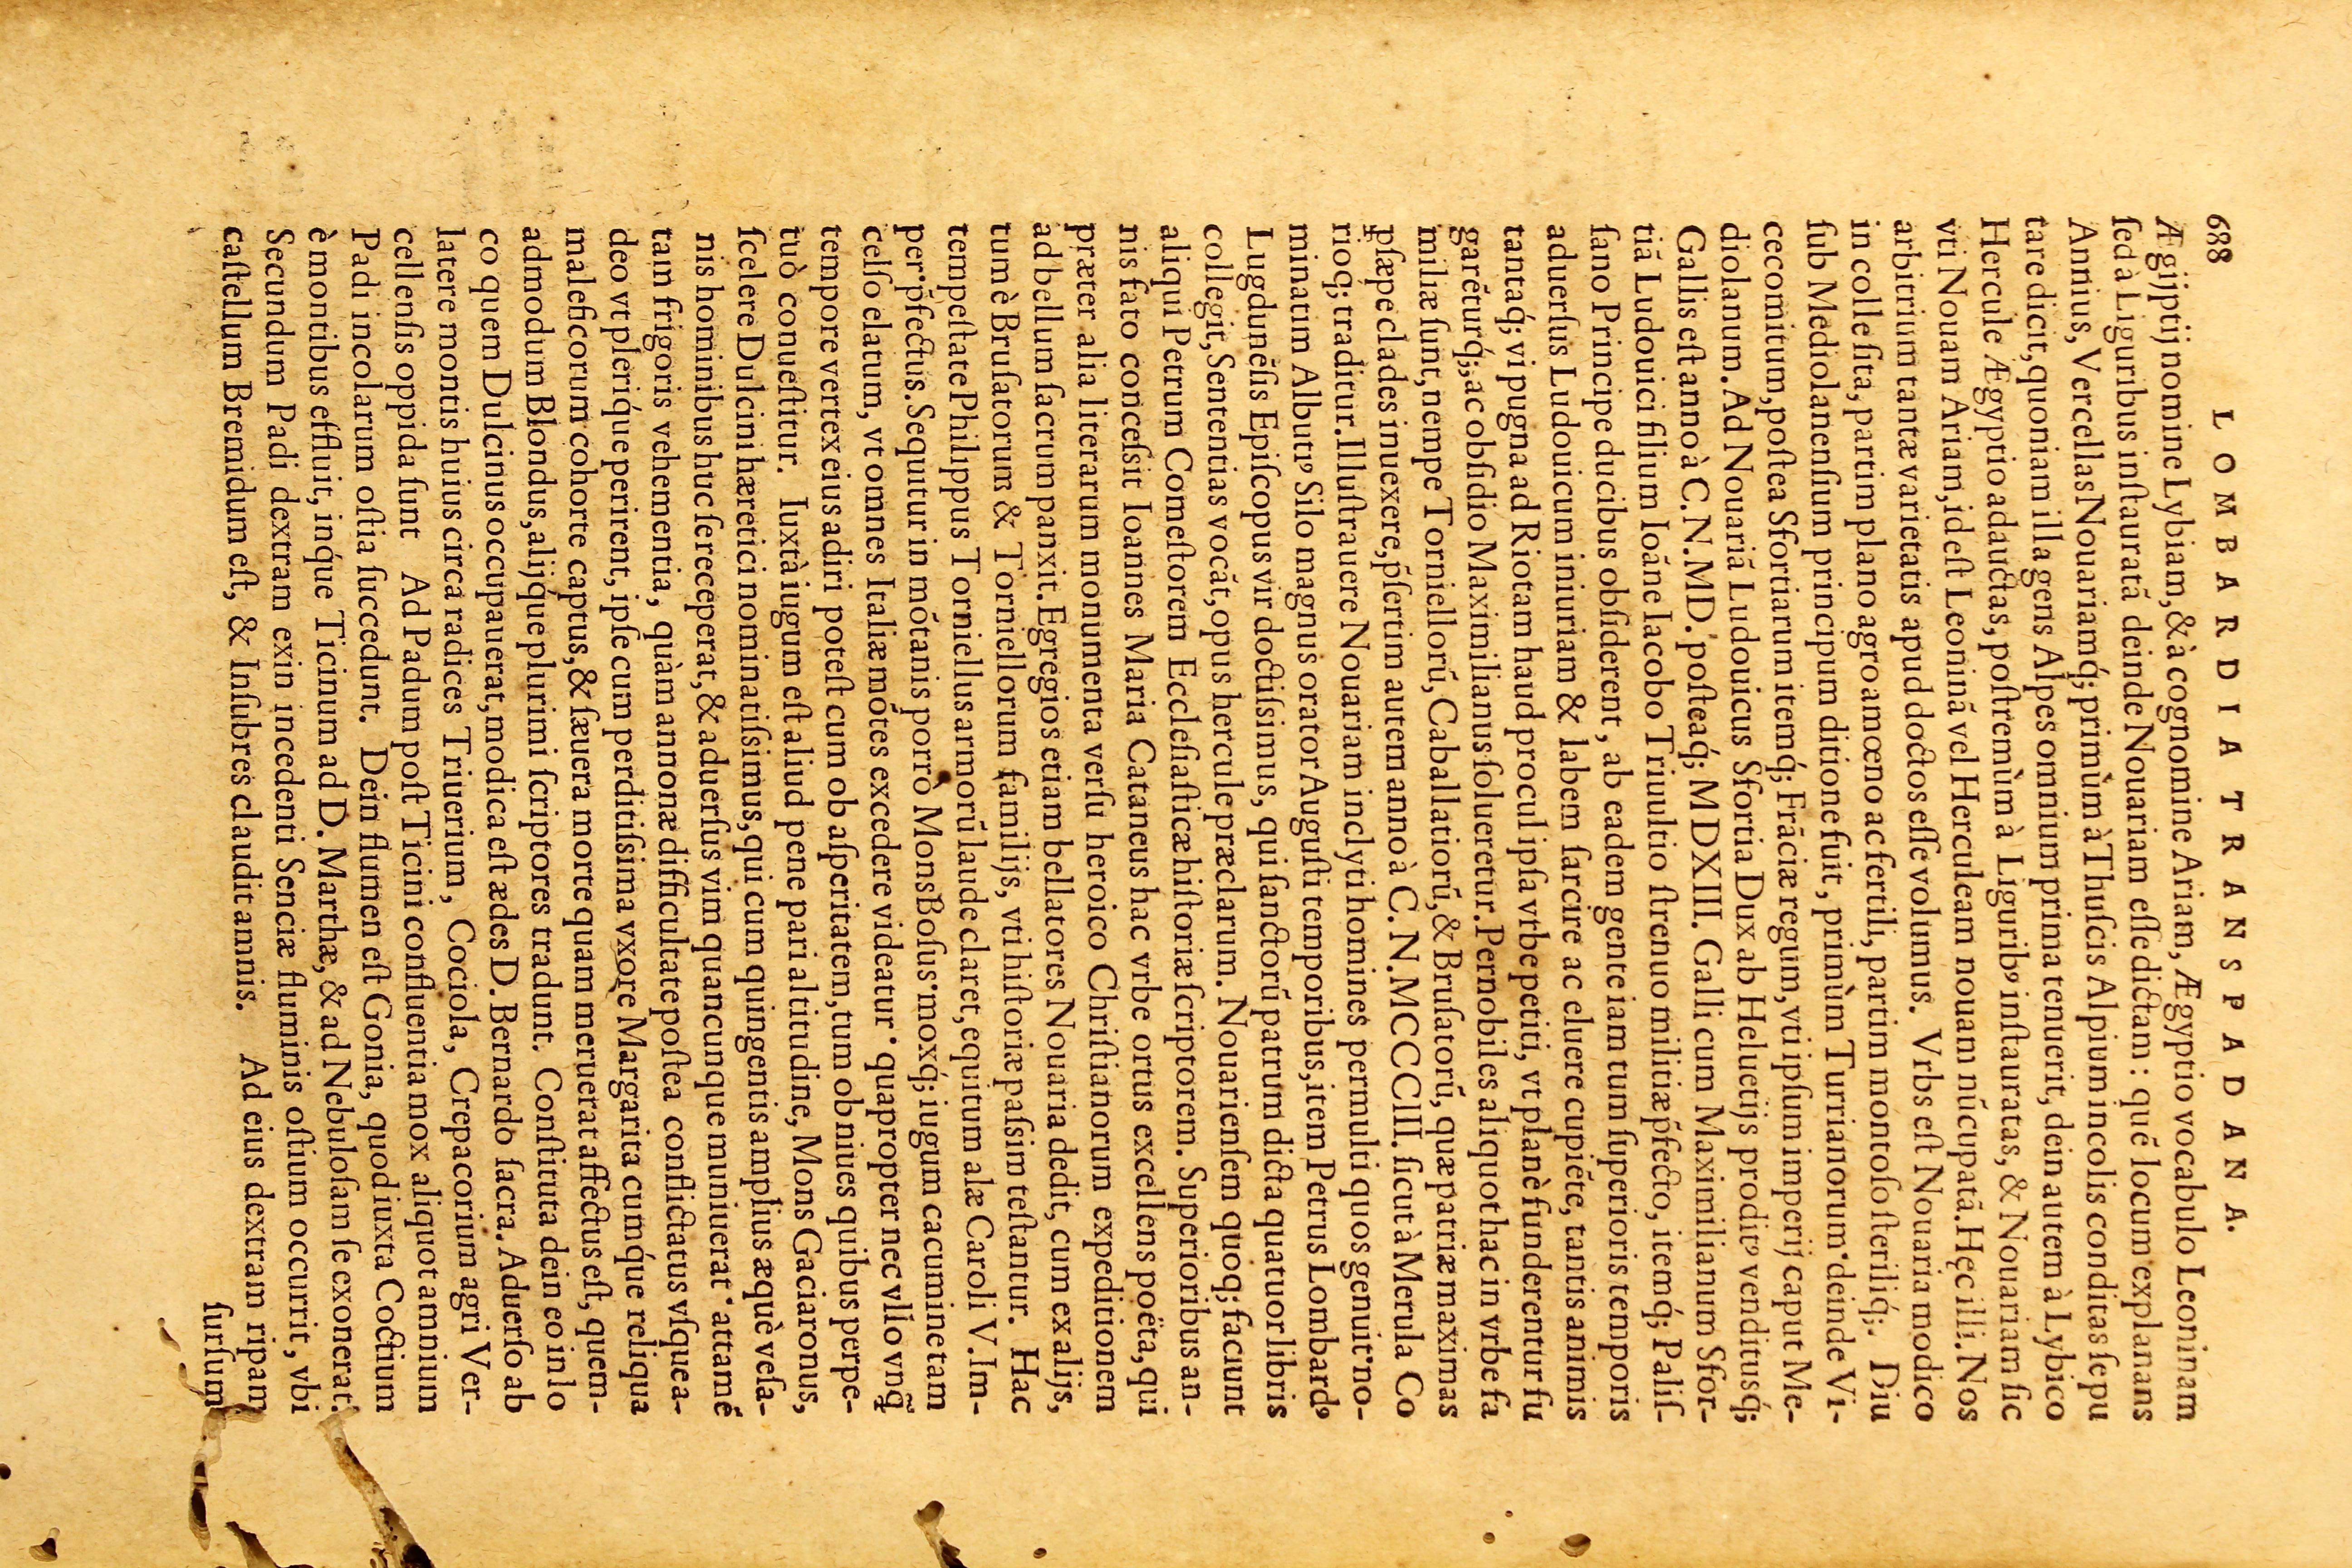 688 LOMBARDIA TRANSPADANA.
Ægijptij nomine Lybiam, & à cognomine Ariam, Ægyptio vocabulo Leoninam
ſed à Liguribus inſtauratã deinde Nouariam eſſe dictam : quẽ locum explanans
Annius, Vercellas Nouariamq́; primùm à Thuſcis Alpium incolis conditas ſe pu
tare dicit, quoniam illa gens Alpes omnium prima tenuerit, dein autem à Lybico
Hercule Ægyptio adauctas, poſtremùm à Liguribꝰ inſtauratas, & Nouariam ſic
vti Nouam Ariam, id eſt Leoninã vel Herculeam nouam nũcupatã. Hęc illi. Nos
arbitrium tantæ varietatis apud doctos eſſe volumus. Vrbs eſt Nouaria modico
in colle ſita, partim plano agro amœno ac fertili, partim montoſo ſteriliq́;. Diu
ſub Mediolanenſium principum ditione fuit, primùm Turrianorum· deinde Vi-
cecomitum, poſtea Sfortiarum itemq́; Frãciæ regum, vti ipſum imperij caput Me-
diolanum. Ad Nouariã Ludouicus Sfortia Dux ab Heluetijs proditꝰ venditusq́;
Gallis eſt anno à C. N. MD. poſteaq́; MDXIII. Galli cum Maximilianum Sfor-
tiã Ludouici filium Ioãne Iacobo Triuultio ſtrenuo militiæ p̃fecto, itemq́; Paliſ-
ſano Principe ducibus obſiderent, ab eadem gente iam tum ſuperioris temporis
aduerſus Ludouicum iniuriam & labem ſarcire ac eluere cupiẽte, tantis animis
tantaq́; vi pugna ad Riotam haud procul ipſa vrbe petiti, vt planè funderentur fu
garẽturq́;, ac obſidio Maximilianus ſolueretur. Pernobiles aliquot hac in vrbe fa
miliæ ſunt, nempe Torniellorũ, Caballatiorũ, & Bruſatorũ, quæ patriæ maximas
ꝑſæpe clades inuexere, p̃ſertim autem anno à C. N. MCCCIII. ſicut à Merula Co
rioq́; traditur. Illuſtrauere Nouariam inclyti homines permulti quos genuit· no-
minatim Albutꝰ Silo magnus orator Auguſti temporibus, item Petrus Lombardꝰ
Lugdunẽſis Epiſcopus vir doctiſsimus, qui ſanctorũ patrum dicta quatuor libris
collegit, Sententias vocãt, opus hercule præclarum. Nouarienſem quoq; faciunt
aliqui Petrum Comeſtorem Eccleſiaſticæ hiſtoriæ ſcriptorem. Superioribus an-
nis fato conceſsit Ioannes Maria Cataneus hac vrbe ortus excellens poëta, qui
præter alia literarum monumenta verſu heroico Chriſtianorum expeditionem
ad bellum ſacrum panxit. Egregios etiam bellatores Nouaria dedit, cum ex alijs,
tum è Bruſatorum & Torniellorum familijs, vti hiſtoriæ paſsim teſtantur. Hac
tempeſtate Philippus Torniellus armorũ laude claret, equitum alæ Caroli V. Im-
per· p̃fectus. Sequitur in mõtanis porrò Mons Boſus· moxq́; iugum cacumine tam
celſo elatum, vt omnes Italiæ mõtes excedere videatur· quapropter nec vllo vnq̃
tempore vertex eius adiri poteſt cum ob aſperitatem, tum ob niues quibus perpe-
tuò conueſtitur. Iuxtà iugum eſt aliud pene pari altitudine, Mons Gaciaronus,
ſcelere Dulcini hæretici nominatiſsimus, qui cum quingentis amplius æquè veſa-
nis hominibus huc ſe receperat, & aduerſus vim quancunque muniuerat· attamẽ
tam frigoris vehementia, quàm annonæ difficultate poſtea conflictatus vſquea-
deo vt pleriq́ue perirent, ipſe cum perditiſsima vxore Margarita cumq́ue reliqua
maleficorum cohorte captus, & ſæuera morte quam meruerat affectus eſt, quem-
admodum Blondus, alijq́ue plurimi ſcriptores tradunt. Conſtituta dein eo in lo
co quem Dulcinus occupauerat, modica eſt ædes D. Bernardo ſacra. Aduerſo ab
latere montis huius circa radices Triuerium, Cociola, Crepacorium agri Ver-
cellenſis oppida ſunt Ad Padum poſt Ticini confluentia mox aliquot amnium
Padi incolarum oſtia ſuccedunt. Dein flumen eſt Gonia, quod iuxta Coctium
è montibus effluit, inq́ue Ticinum ad D. Marthæ, & ad Nebuloſam ſe exonerat.
Secundum Padi dextram exin incedenti Senciæ fluminis oſtium occurrit, vbi
caſtellum Bremidum eſt, & Inſubres claudit amnis. Ad eius dextram ripam
ſurſum